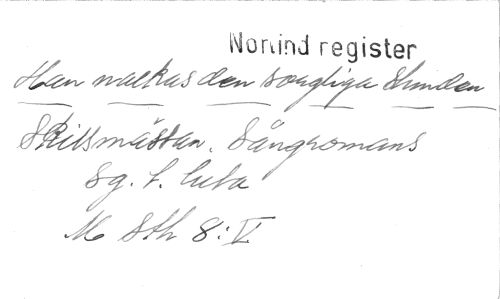 Norlind register
Han nalkas den sorgliga stunden
Skilsmässan. Sångromans
Sg. f. luta
M Sth 8:V